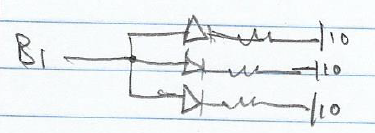 B1
10
10
10